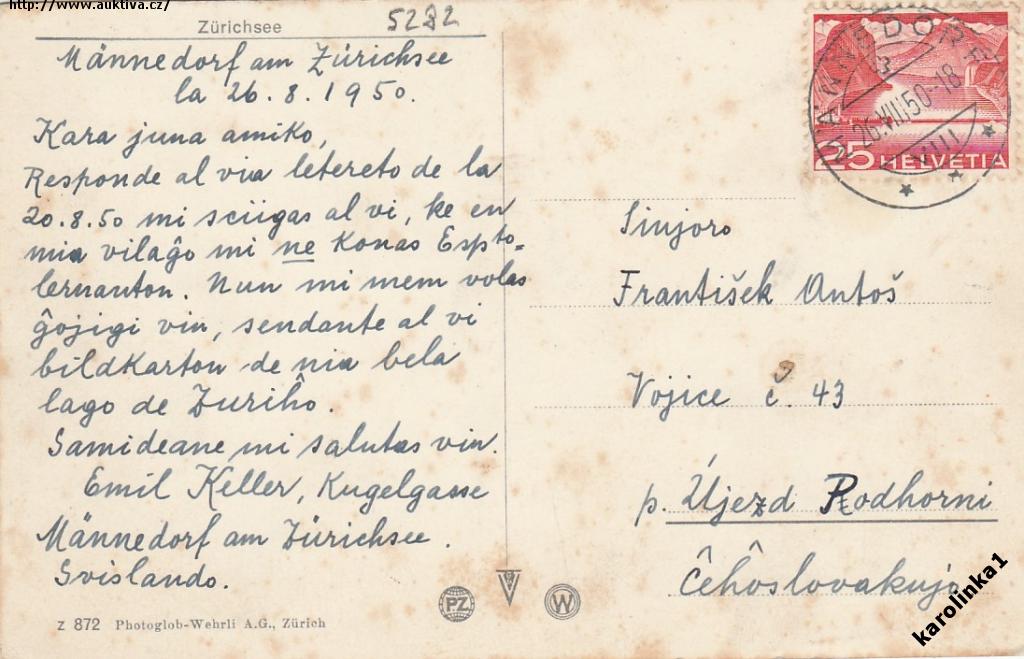 http://www.auktiva.cz/
Zürichsee
5282
Männedorf am Zürichsee
la 26.8.1950.
Kara juna amiko,
Responde al via letereto de la
20.8.50 mi sciigas al vi, ke en
mia vilaĝo mi ne konas Espto-
lernanton. Nun mi mem volas
ĝojigi vin, sendante al vi
bildkarton de nia bela
lago de Zuriĥo.
Samideane mi salutas vin.
Emil Keller, Kugelgasse
Männedorf am Zürichsee.
Svislando.
z 872 Photoglob-Wehrli A.G., Zürich
PZ
W
MÄNNEDORF
26.VIII.50-18
25 HELVETIA
Sinjoro
František Antoš
Vojice č. 43
p. Újezd Podhorni
Ĉeĥoslovakujo
karolinka1